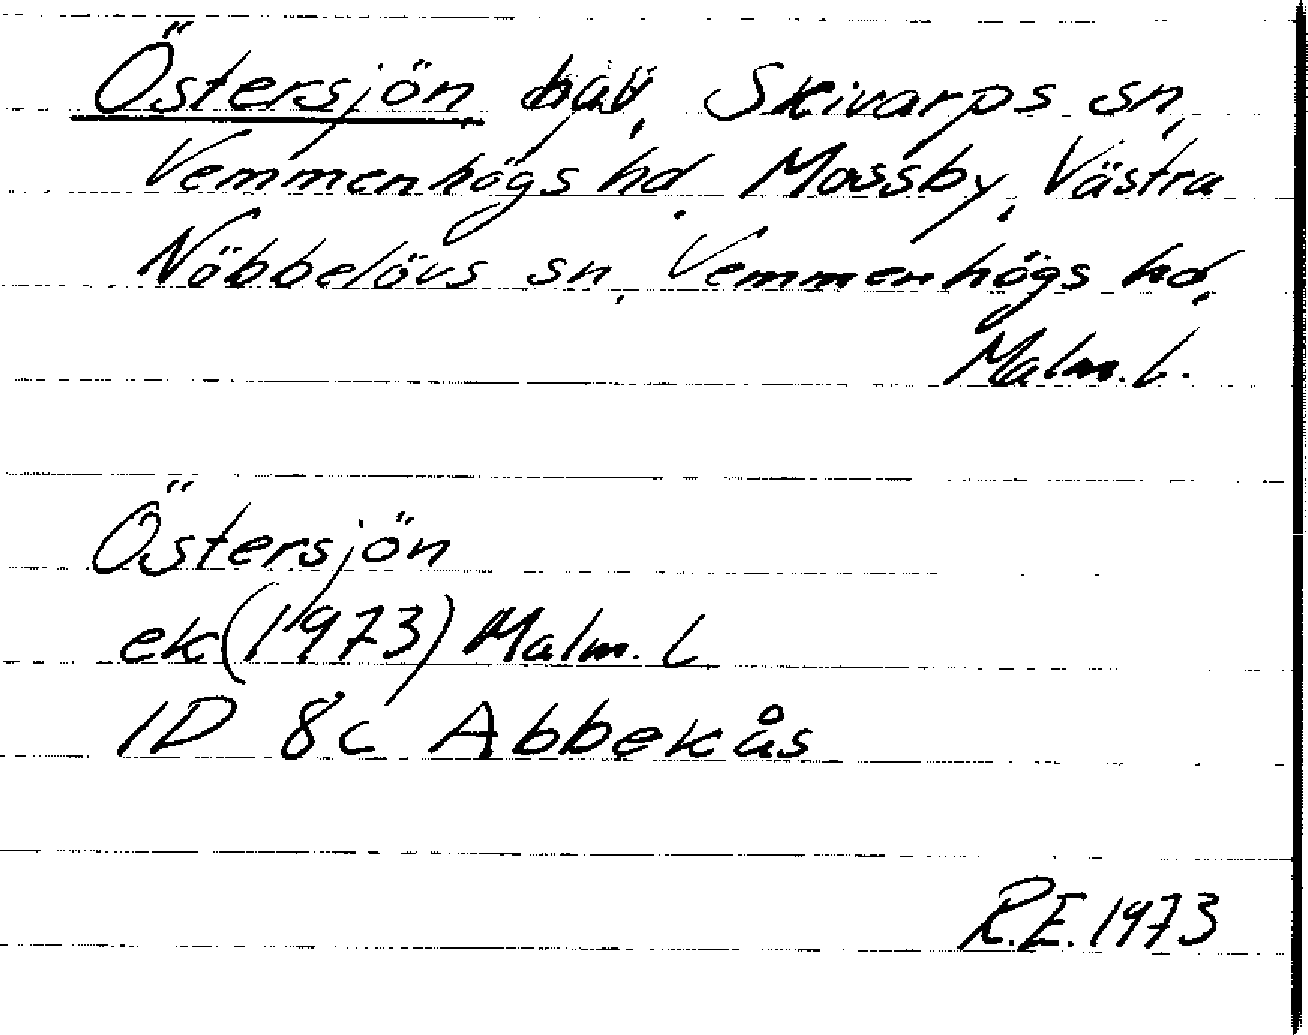 Östersjön, hav, Skivarps sn,
Vemmenhögs hd. Mossby, Västra
Nöbbelövs sn, Vemmenhögs hd,
Malm. L.
Östersjön
ek (1973) Malm. L
1D 8c Abbekås
R.E. 1973